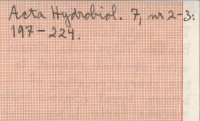 Acta Hydrobiol. 7, nr 2-3:
197-224.